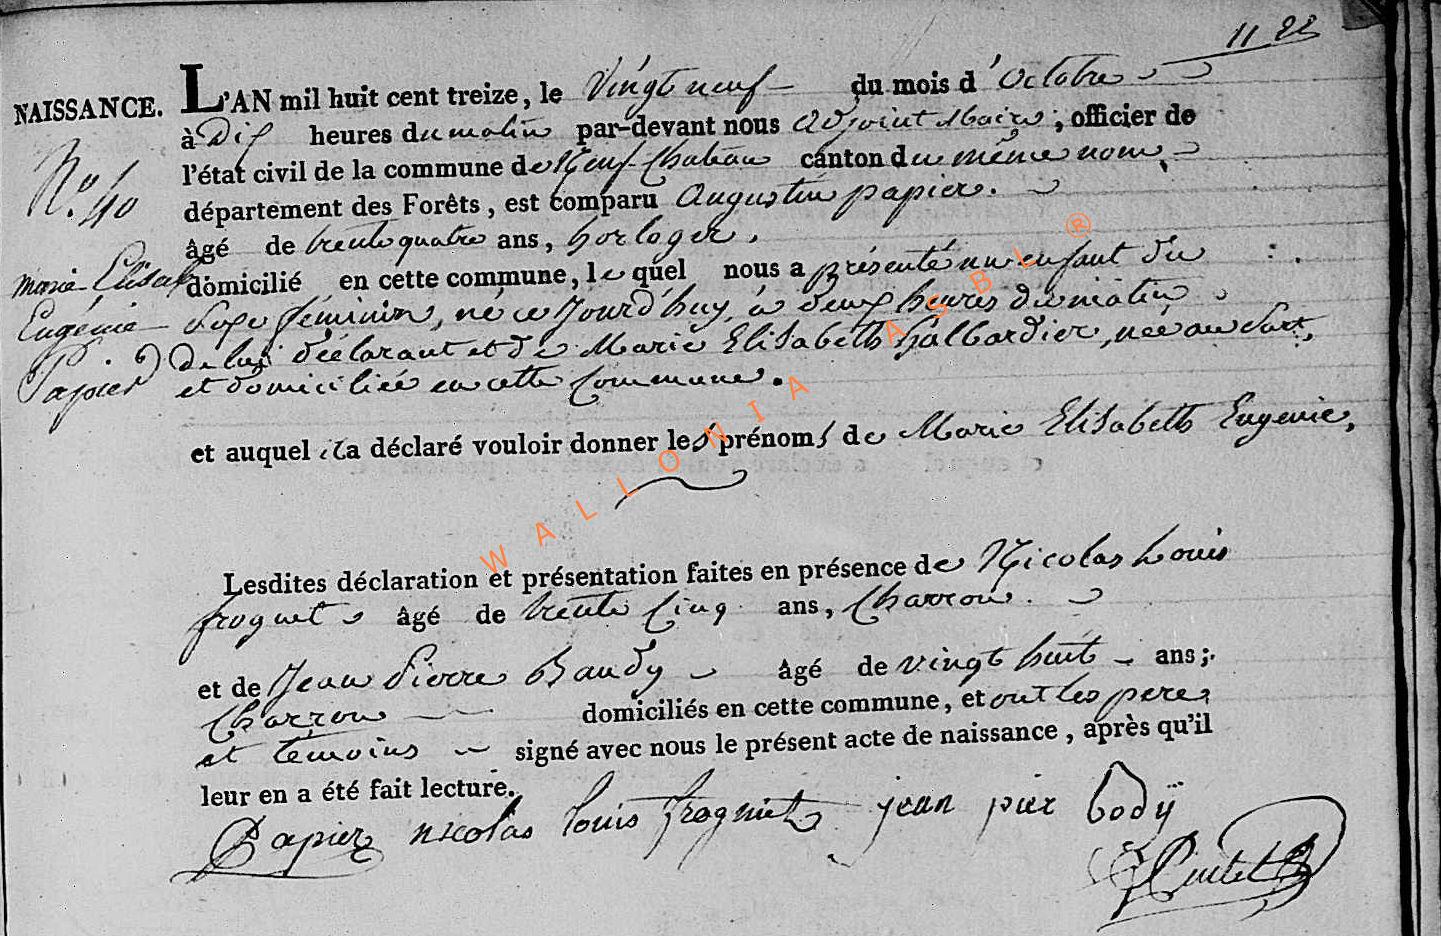 11 88
NAISSANCE. L'AN mil huit cent treize, le Vingt neuf du mois d'octobre
à Dix heures du matin par-devant nous adjoint Maire, officier de
l'état civil de la commune de Neuf-Chateau canton du même nom,
département des Forêts, est comparu Augustin papier.
âgé de trente quatre ans, horloger,
domicilié en cette commune, le quel nous a présenté un enfant du
Sexe féminin, né ce Jourd'huy, à deux heures du matin
De lui déclarant et de Marie Elisabeth Halbardier, née au Sart,
et domiciliée en cette Commune.
et auquel il a déclaré vouloir donner les prénoms de Marie Elisabeth Eugenie,
N.° 40
marie Elisab
Eugénie
Papier
Lesdites déclaration et présentation faites en présence de Nicolas Louis
frognet âgé de trente Cinq ans, Charron.
et de Jean Pierre Baudy âgé de vingt huit ans;
Charron domiciliés en cette commune, et ont les pere
et témoins signé avec nous le présent acte de naissance, après qu'il
leur en a été fait lecture.
Papier nicolas louis frogniet jean pier bodÿ
WALLONIA ASBL ®